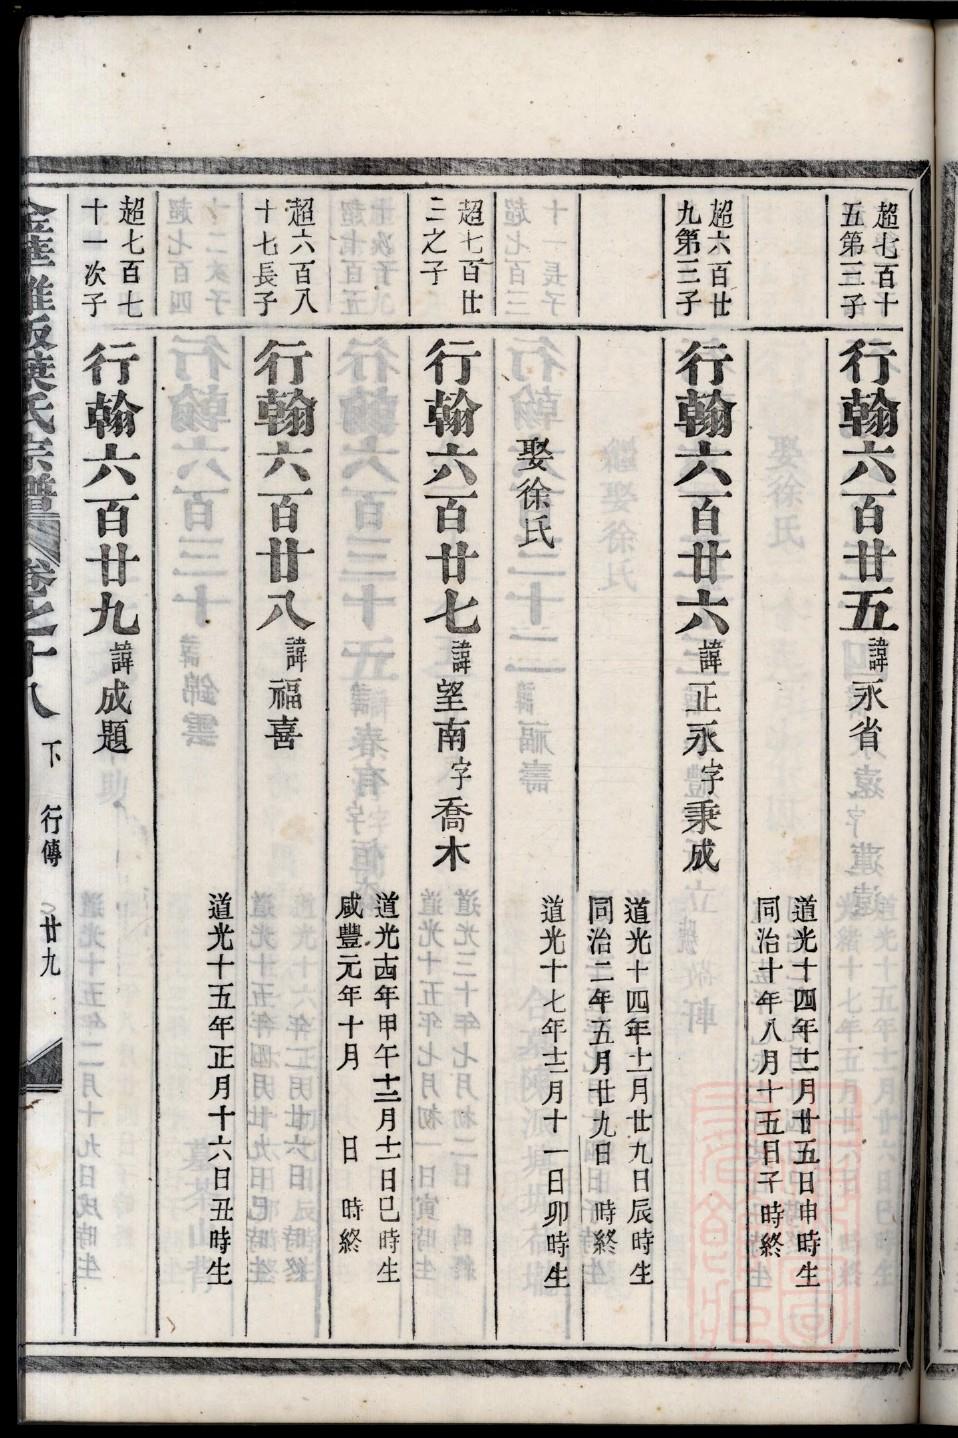 超七百十
五第三子
行翰六百廿五諱永省
道光十四年十二月廿五日申時生
同治十年八月十五日子時終
超六百廿
九第三子
行翰六百廿六諱正永字秉成
道光十四年十一月廿九日辰時生
同治二年五月廿九日 時終
娶徐氏
道光十七年十二月十一日卯時生
超七百廿
二之子
行翰六百廿七諱望南字喬木
道光十四年甲午十二月十一日巳時生
咸豐元年十月 日 時終
超六百八
十七長子
行翰六百廿八諱福喜
道光十五年正月十六日丑時生
超七百七
十一次子
行翰六百廿九諱成題
金華雅畈葉氏宗譜 卷之十八 下 行傳 廿九